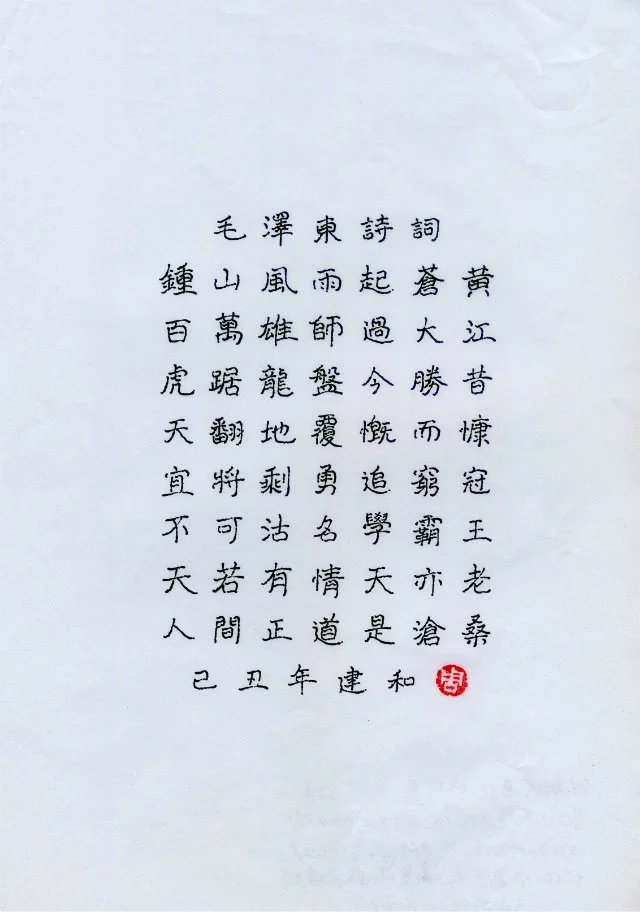 毛澤東詩詞
鍾山風雨起蒼黃
百萬雄師過大江
虎踞龍盤今勝昔
天翻地覆慨而慷
宜將剩勇追窮冠
不可沽名學霸王
天若有情天亦老
人間正道是滄桑
己丑年建和